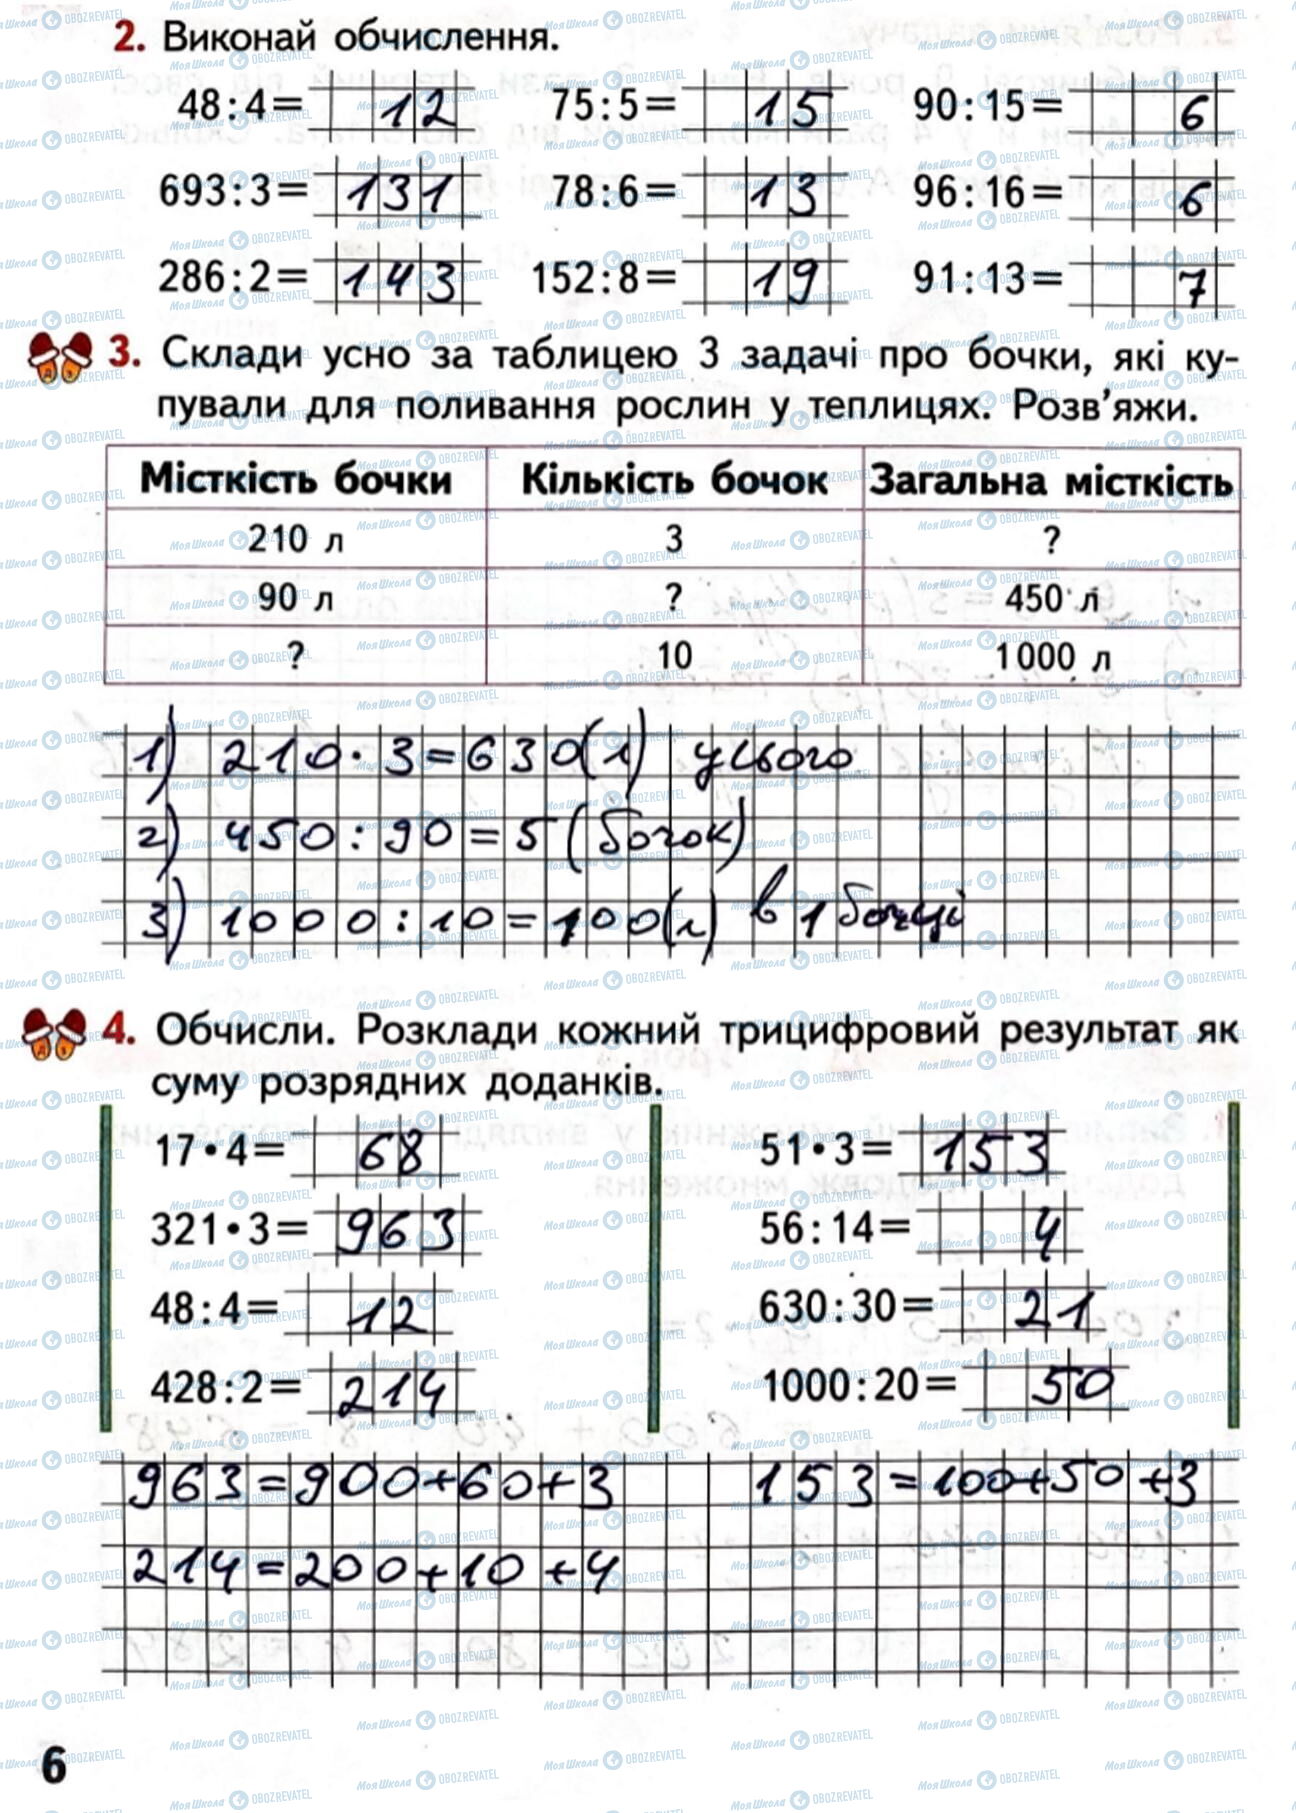 2. Виконай обчислення.
48:4= 12 75:5= 15 90:15= 6
693:3= 131 78:6= 13 96:16= 6
286:2= 143 152:8= 19 91:13= 7
3. Склади усно за таблицею 3 задачі про бочки, які ку-
пували для поливання рослин у теплицях. Розв’яжи.
Місткість бочки Кількість бочок Загальна місткість
210 л 3 ?
90 л ? 450 л
? 10 1000 л
1) 210·3=630(л) усього
2) 450:90=5 (бочок)
3) 1000:10=100(л) в 1 бочці
4. Обчисли. Розклади кожний трицифровий результат як
суму розрядних доданків.
17·4= 68 51·3= 153
321·3= 963 56:14= 4
48:4= 12 630:30= 21
428:2= 214 1000:20= 50
963=900+60+3 153=100+50+3
214=200+10+4
6
МояШкола OBOZREVATEL